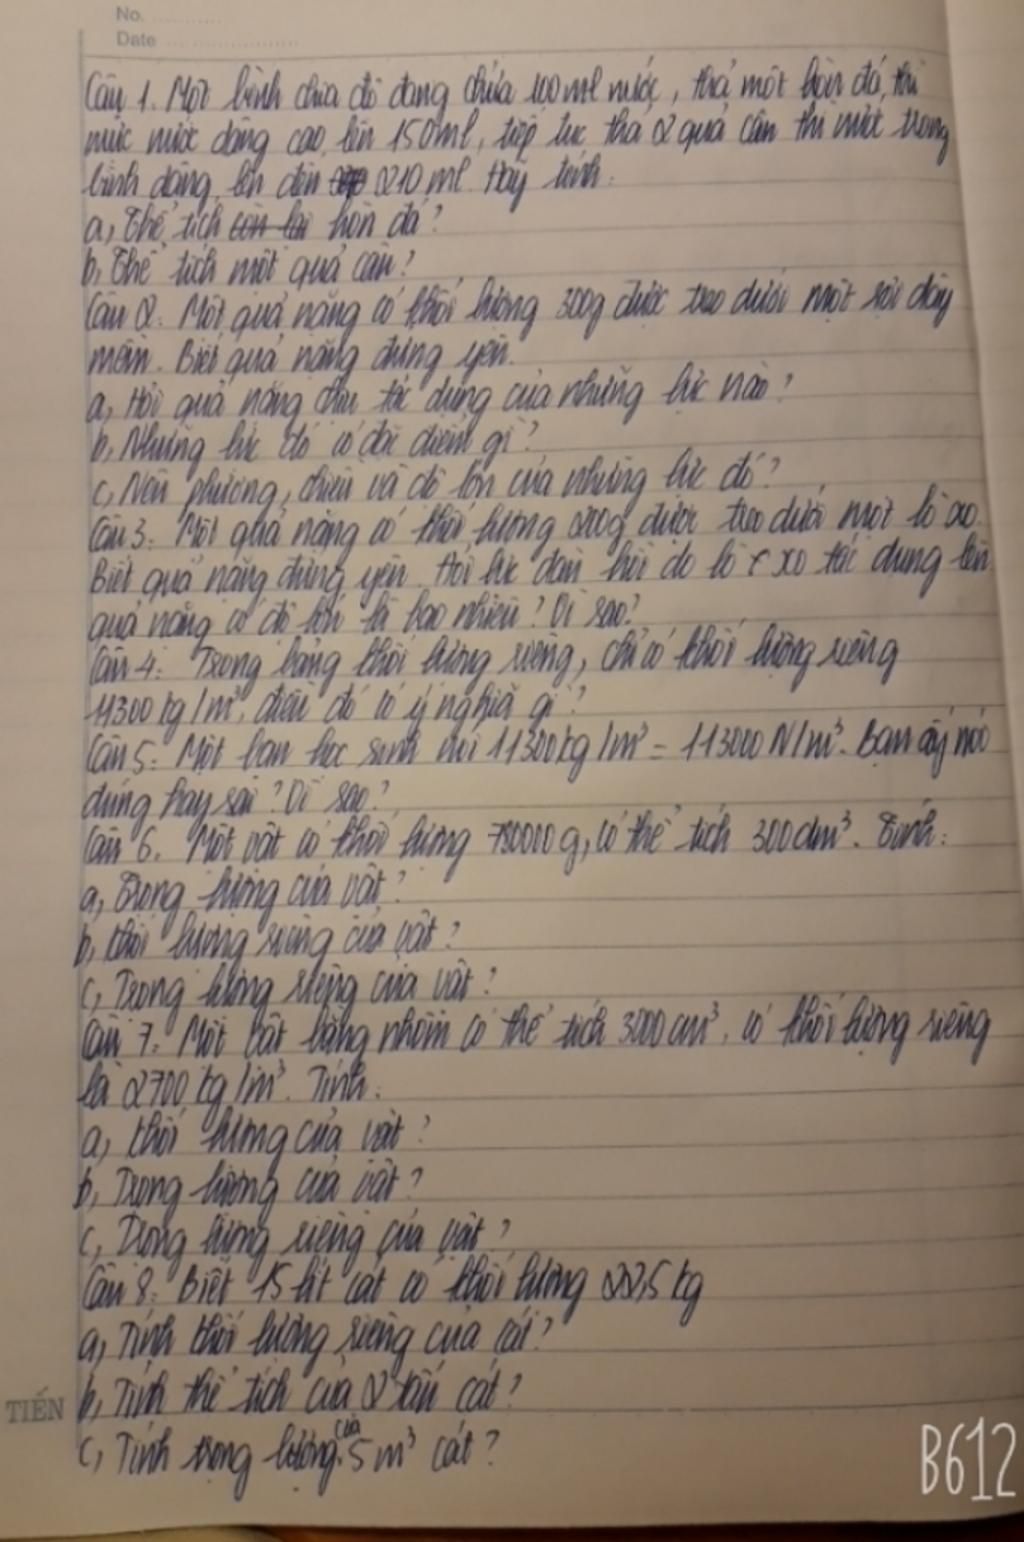 No. ............
Date ........................
Câu 1. Một bình chia độ đang chứa 100ml nước, thả một hòn đá, thì
mức nước dâng cao lên 150ml, tiếp tục thả 2 quả cân thì nước trong
bình dâng lên đến 210 ml. Hãy tính:
a, Thể tích hòn đá?
b, Thể tích một quả cân?
Câu 2. Một quả nặng có khối lượng 300g được treo dưới một sợi dây
mềm. Biết quả nặng đứng yên.
a, Hỏi quả nặng chịu tác dụng của những lực nào?
b, Những lực đó có đặc điểm gì?
c, Nêu phương, chiều và độ lớn của những lực đó?
Câu 3: Một quả nặng có khối lượng 200g được treo dưới một lò xo.
Biết quả nặng đứng yên. Hỏi lực đàn hồi do lò xo tác dụng lên
quả nặng có độ lớn là bao nhiêu? Vì sao?
Câu 4: Trong bảng khối lượng riêng, chì có khối lượng riêng
11300 kg/m³, điều đó có ý nghĩa gì?
Câu 5: Một bạn học sinh nói 11300kg/m³ = 113000 N/m³. Bạn ấy nói
đúng hay sai? Vì sao?
Câu 6. Một vật có khối lượng 780000g, có thể tích 300dm³. Tính:
a, Trọng lượng của vật?
b, Khối lượng riêng của vật?
c, Trọng lượng riêng của vật?
Câu 7: Một vật bằng nhôm có thể tích 3000cm³, có khối lượng riêng
là 2700 kg/m³. Tính:
a, Khối lượng của vật?
b, Trọng lượng của vật?
c, Trọng lượng riêng của vật?
Câu 8: Biết 15 lít cát có khối lượng 22,5 kg
a, Tính khối lượng riêng của cát?
b, Tính thể tích của 2 tấn cát?
c, Tính trọng lượng của 5 m³ cát?
TIẾN
B612